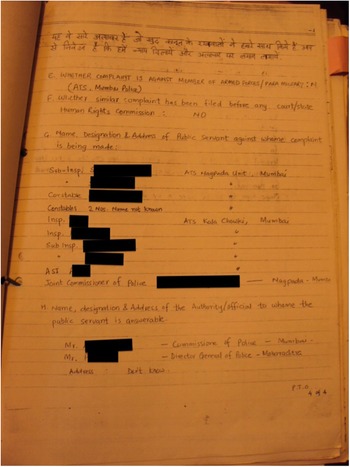 यह है सारे अत्याचार है जो
से निवेदन है कि हमें न्याय दिलाये और
E. WHETHER COMPLAINT IS AGAINST MEMBER OF ARMED FORCES/PARA MILITARY :
(ATS, Mumbai Police)
F. Whether similar complaint has been filed before any court/state
Human Rights Commission : NO
G. Name, Designation & Address of Public Servant against whome complaint
is being made:
Sub-Insp. ATS Nagpada Unit, Mumbai
" "
Constable "
Constables 2 Nos. Name not known "
Insp. ATS Kala Chowki, Mumbai
Insp. "
Sub Insp. "
" "
ASI "
Joint Commissioner of Police — Nagpada - Mumbai
H. Name, designation & Address of the Authority/official to whome the
public servant is answerable
Mr. — Commissioner of Police — Mumbai
Mr. — Director General of Police - Maharashtra
Address Don't know.
P.T.O.